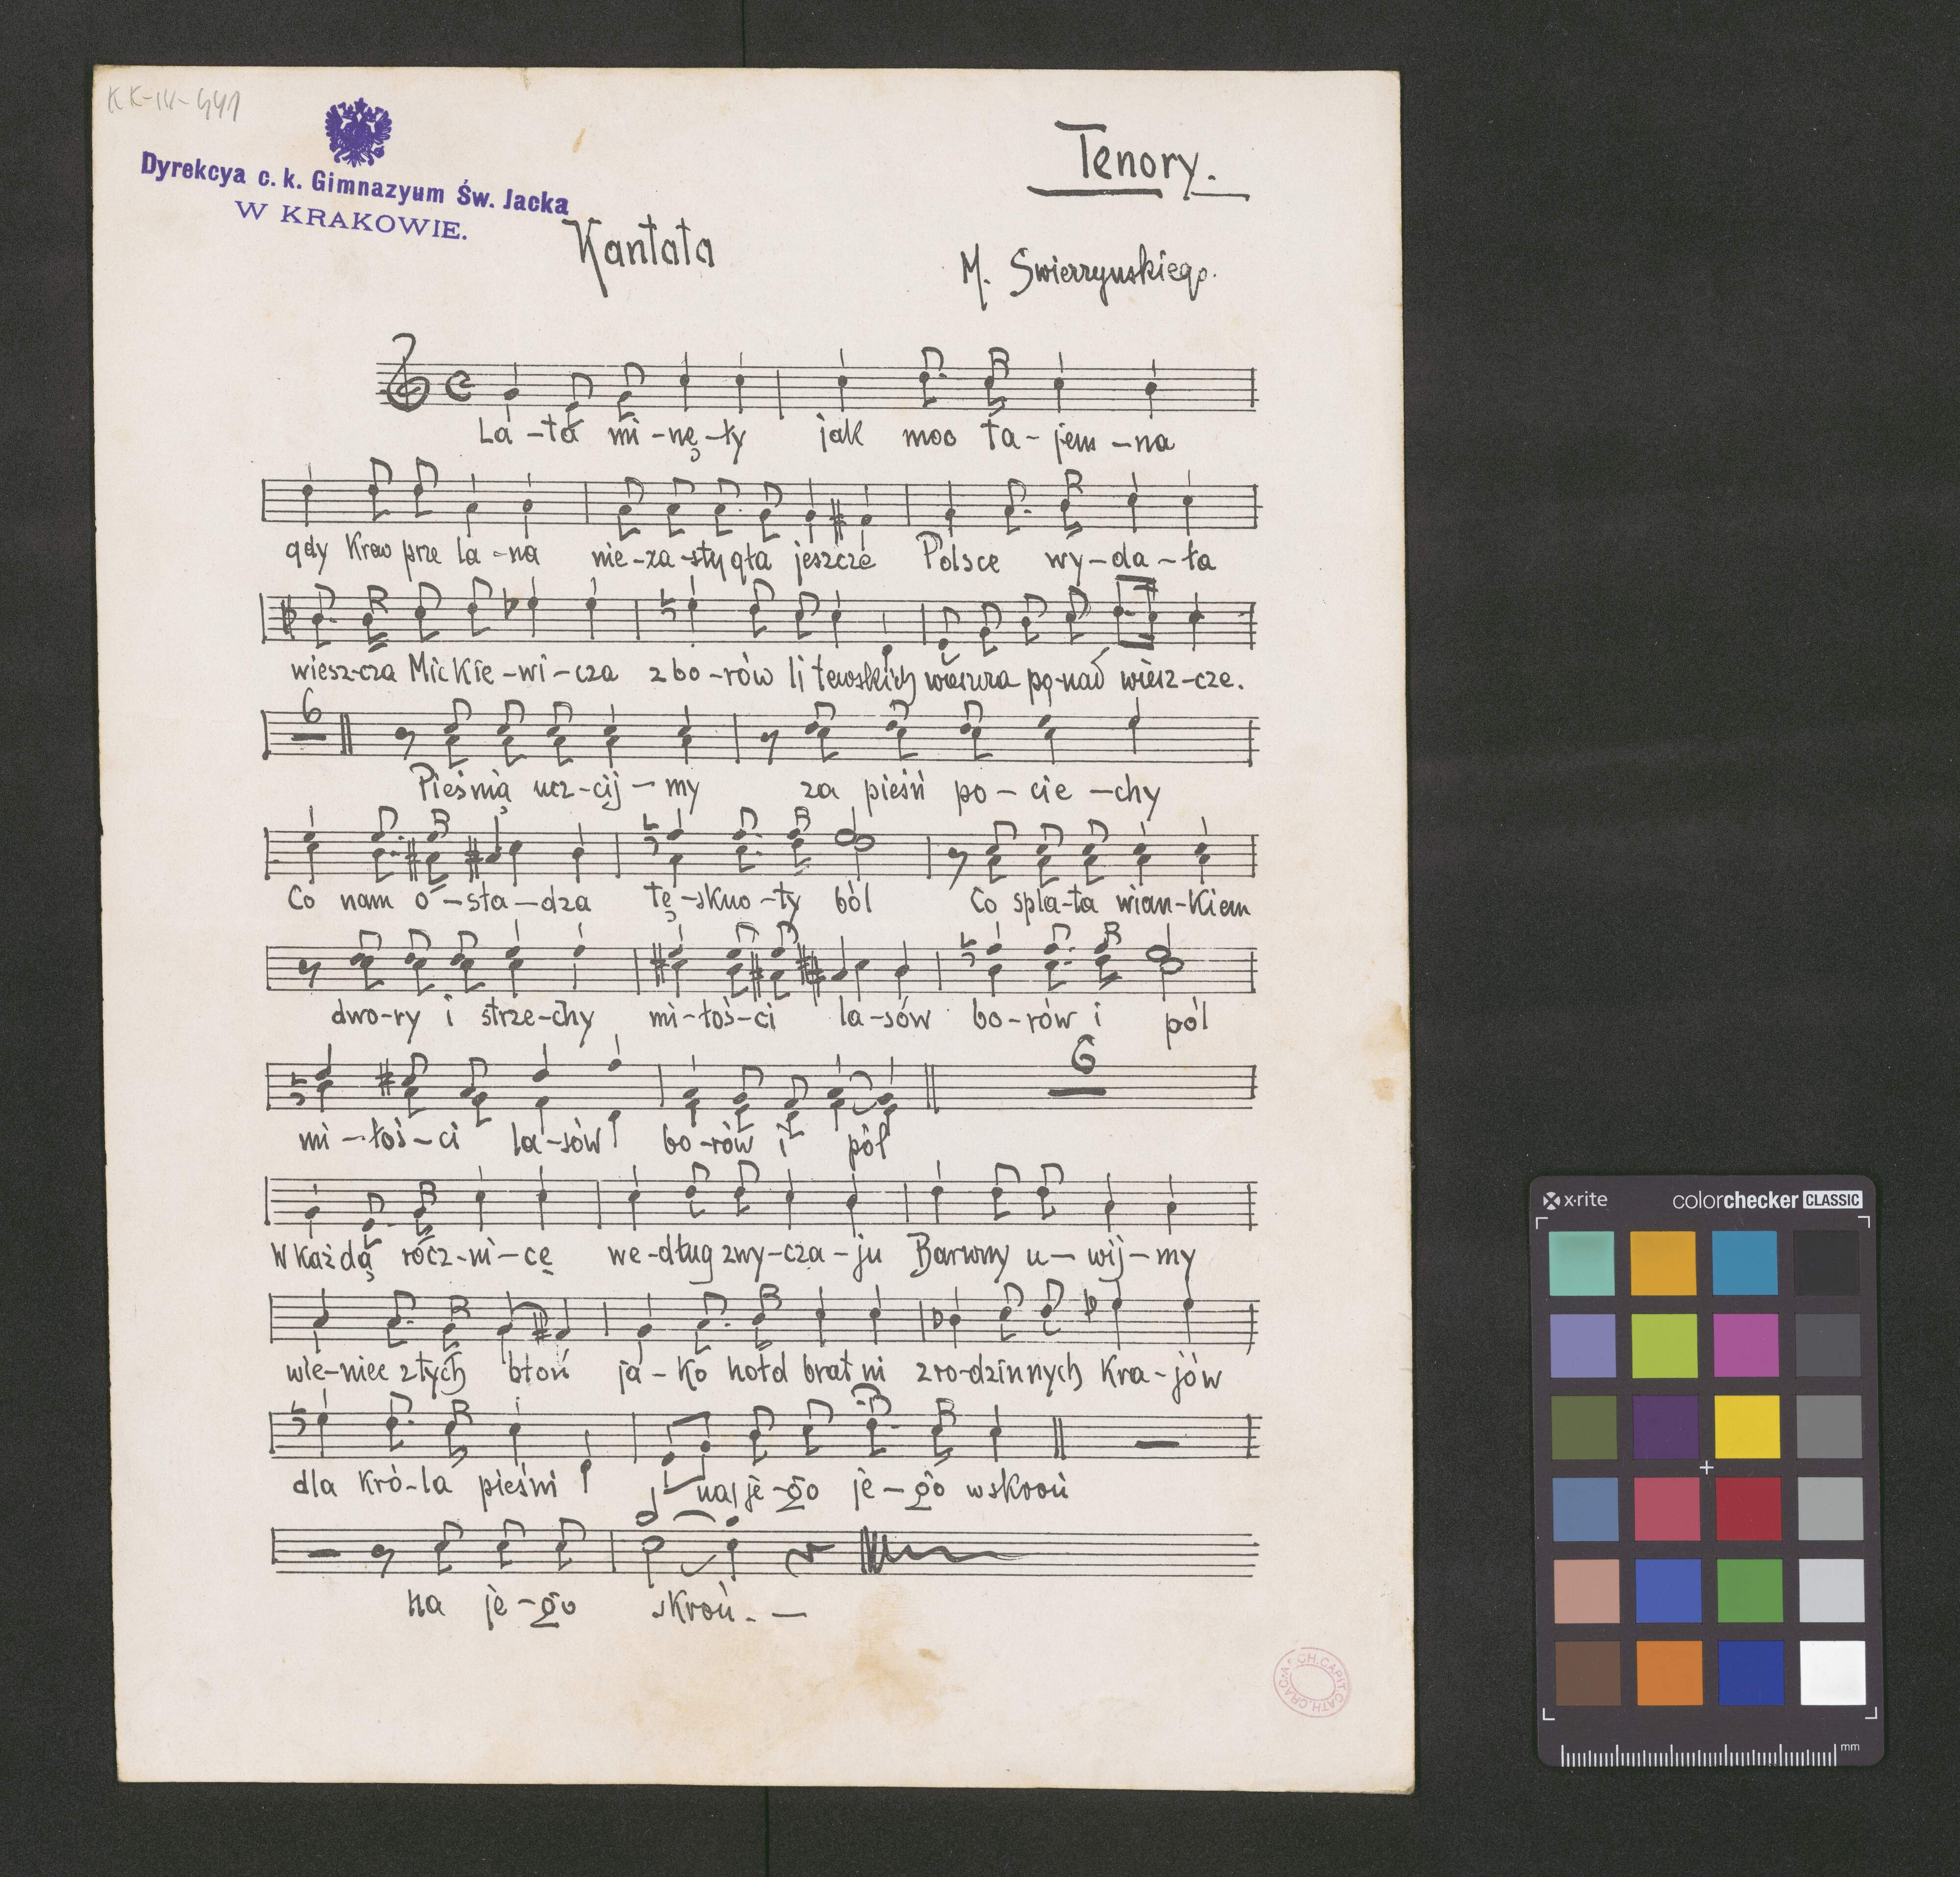 KK-IV-441
Dyrekcya c. k. Gimnazyum Św. Jacka
W KRAKOWIE.
Tenory.
Kantata
M. Swierzynskiego.
La-ta mi-nę-ły jak moc ta-jem-na
gdy Krew prze la-na nie-za-stygła jeszcze Polsce wy-da-ła
wiesz-cza Mickie-wi-cza z bo-rów li tewskich ponad wiesz-cze.
6
Pieśnią ucz-cij-my za pieśń po-cie-chy
Co nam o-sła-dza tę-skno-ty ból Co spla-ta wian-kiem
dwo-ry i strze-chy mi-łoś-ci la-sów bo-rów i pól
6
mi-łoś-ci la-sów bo-rów i pól
W każdą rocz-ni-cę we-dług zwy-cza-ju Barwny u-wij-my
wie-niec z tych błoń ja-ko hołd brat ni z ro-dzinnych Kra-jów
dla kró-la pieśni na je-go je-go wskroń
na je-go skroń. -
ARCH. CAPIT. CATH. CRAC.
x·rite colorchecker CLASSIC
mm